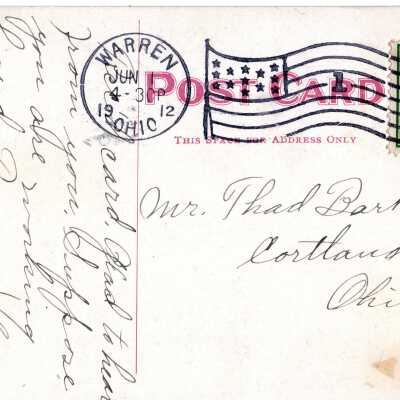 WARREN
JUN
4-30P
19 12
OHIO
1
POST CARD
THIS SPACE FOR ADDRESS ONLY
Mr. Thad Bar
Cortlan
Ohi
card. Glad to hear
from you. Suppose
you are working